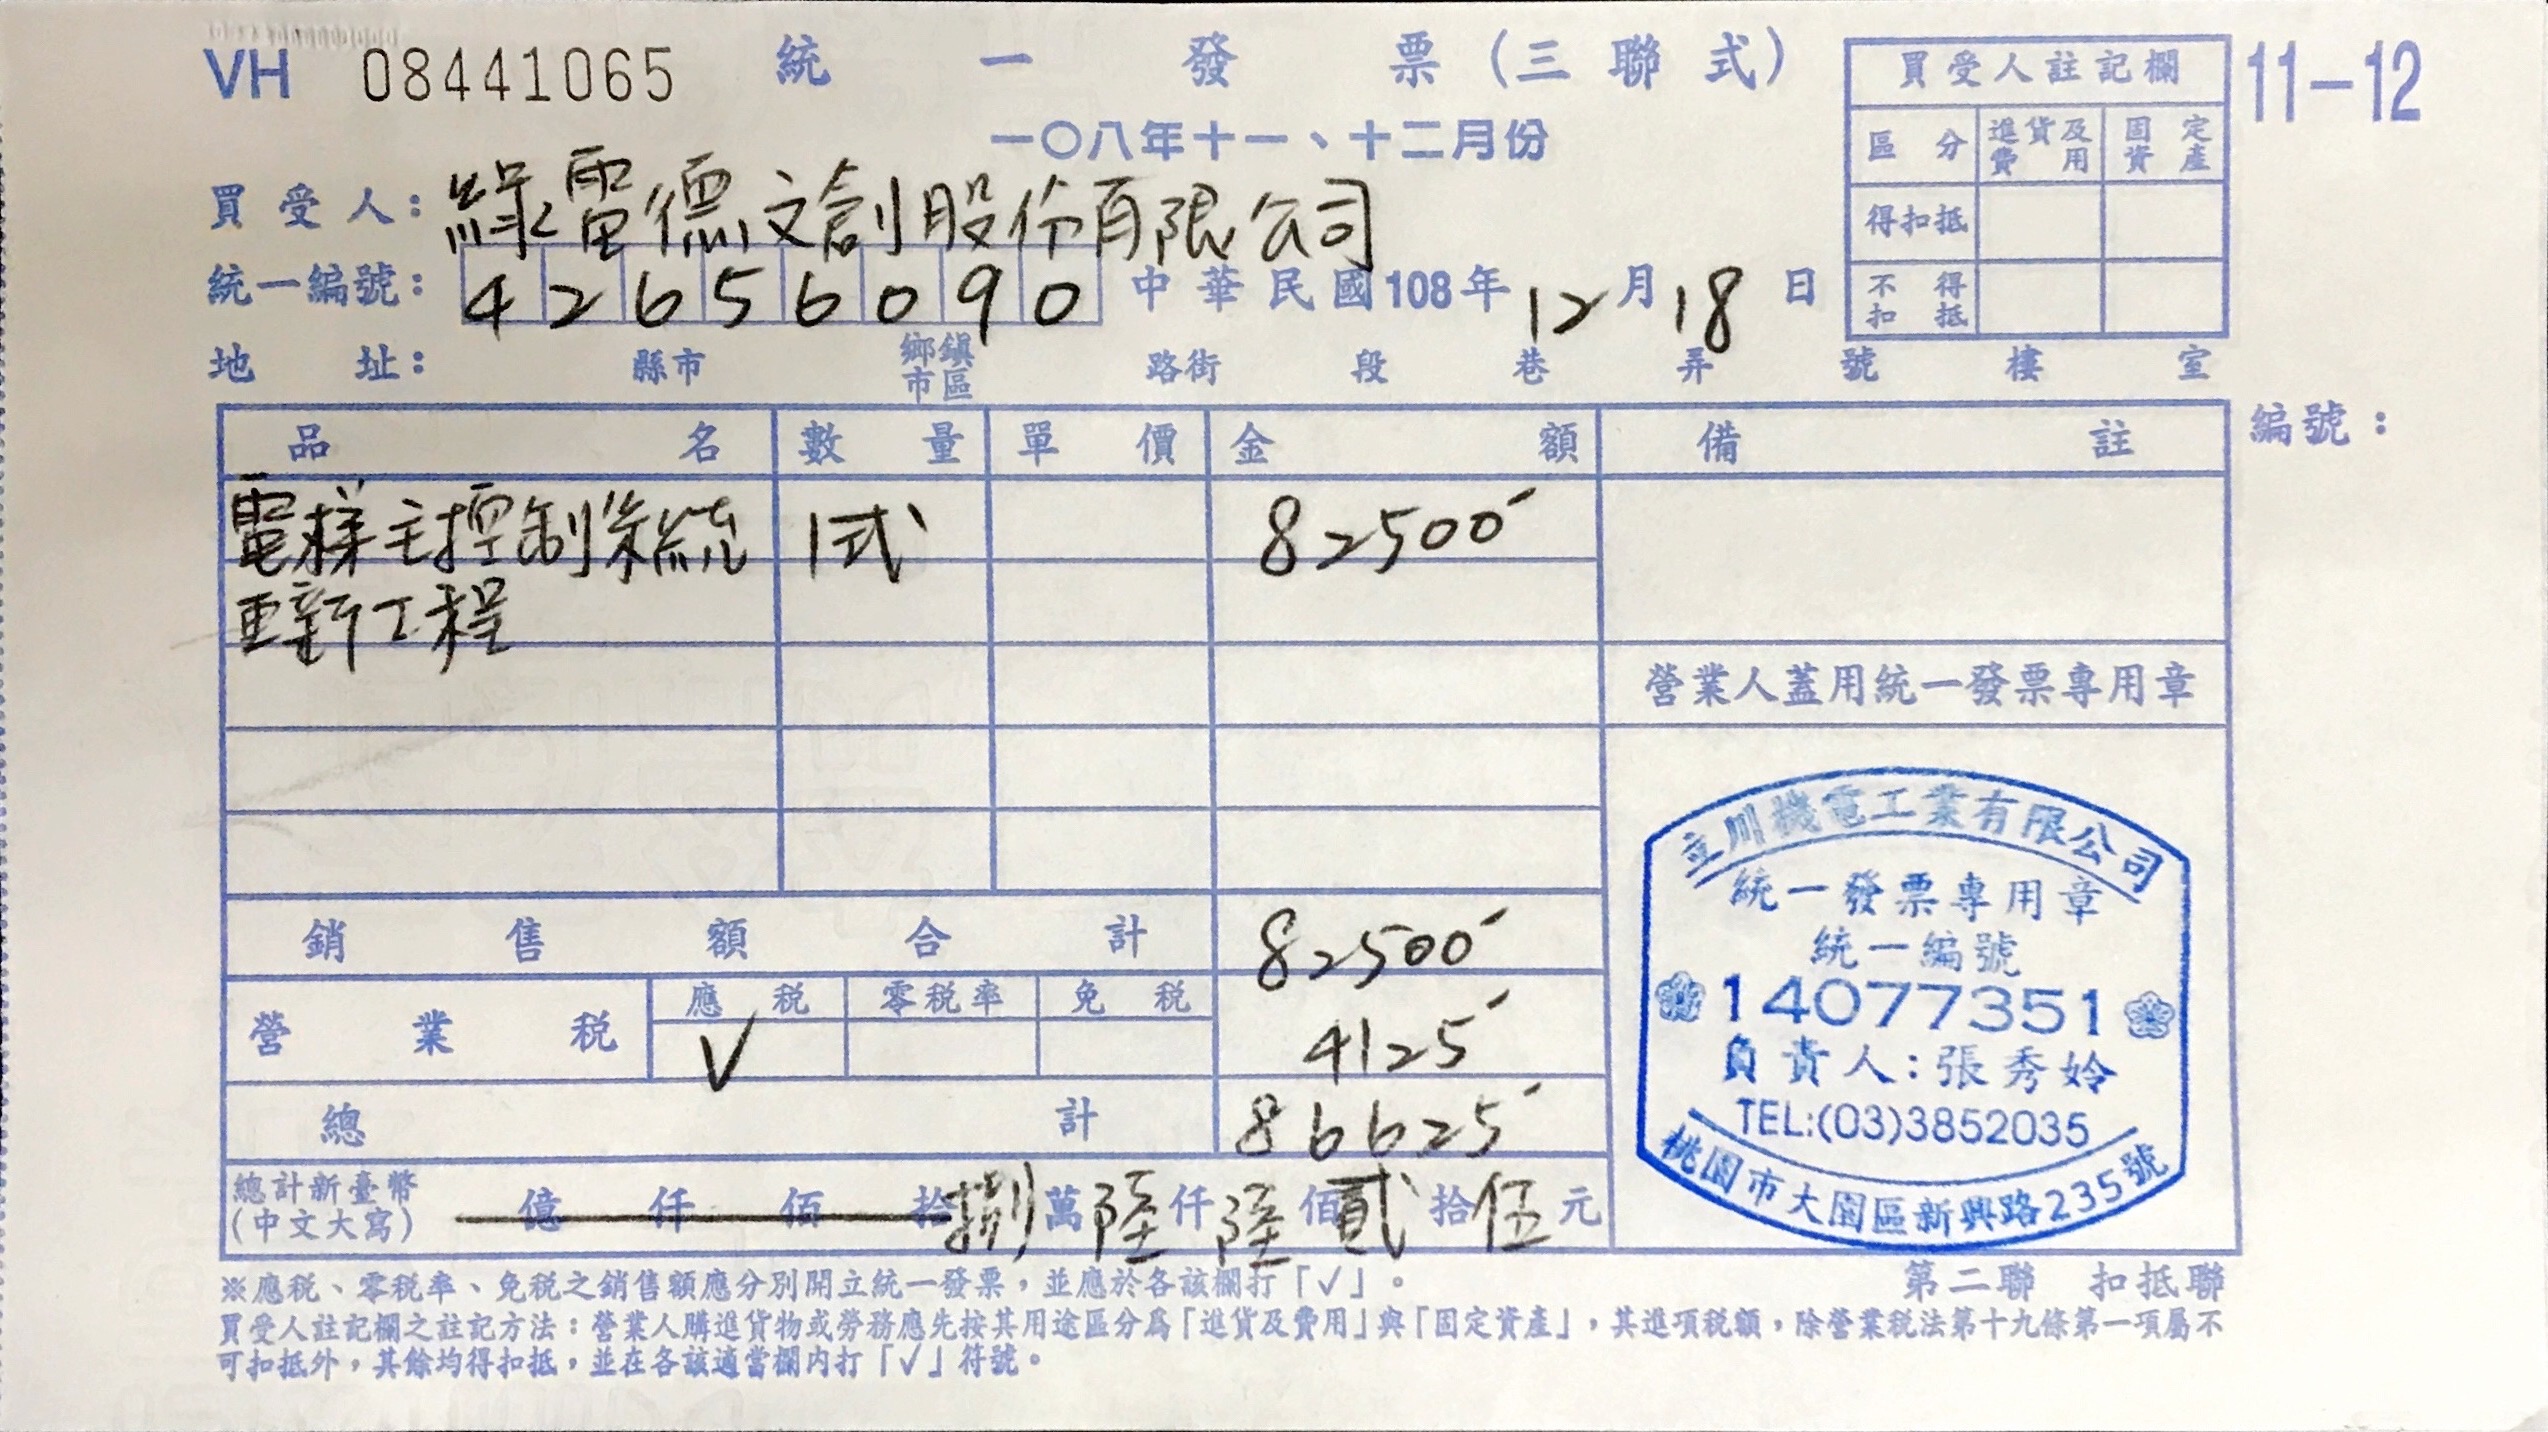 VH 08441065 統一發票(三聯式) 11-12
一〇八年十一、十二月份
買受人註記欄
區分 進貨及費用 固定資產
得扣抵
不得扣抵
買受人: 綠電德文創股份有限公司
統一編號: 42656090 中華民國108年12月18日
地址: 縣市 鄉鎮市區 路街 段 巷 弄 號 樓 室
品名 數量 單價 金額 備註 編號:
電梯主控制系統 1式 82500
更新工程
營業人蓋用統一發票專用章
銷售額合計 82500
營業稅 應稅 零稅率 免稅 4125
V
總計 86625
總計新臺幣(中文大寫) 億仟佰拾捌萬陸仟陸佰貳拾伍元
立川機電工業有限公司
統一發票專用章
統一編號
14077351
負責人:張秀姈
TEL:(03)3852035
桃園市大園區新興路235號
※應稅、零稅率、免稅之銷售額應分別開立統一發票,並應於各該欄打「✓」。 第二聯 扣抵聯
買受人註記欄之註記方法:營業人購進貨物或勞務應先按其用途區分為「進貨及費用」與「固定資產」,其進項稅額,除營業稅法第十九條第一項屬不
可扣抵外,其餘均得扣抵,並在各該適當欄內打「✓」符號。